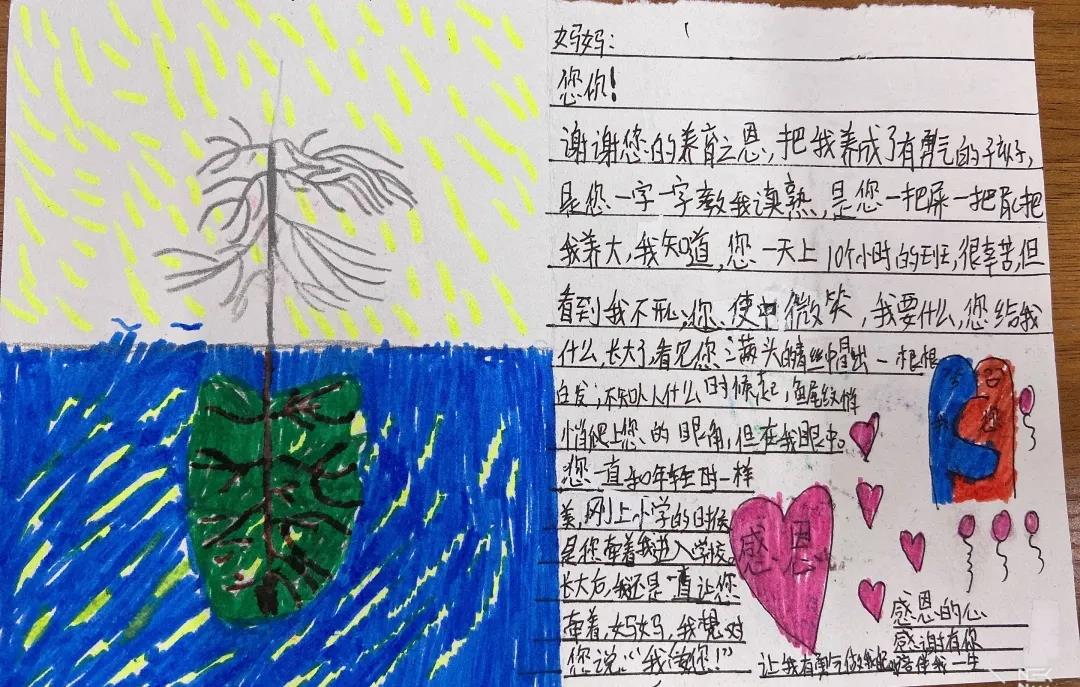 妈妈:
您你!
谢谢您的养育之恩,把我养成了有勇气的孩子,
是您一字一字教我读熟,是您一把屎一把尿把
我养大,我知道,您一天上10个小时的班,很辛苦,但
看到我不开心,您 使 微笑,我要什么,您给我
什么,长大了,看见您满头的青丝中冒出一根根
白发;不知从什么时候起,鱼尾纹悄
悄爬上您的眼角,但在我眼中。
您一直和年轻时一样
美,刚上小学的时候
是你牵着我进入学校。
长大后,我还是一直让您
牵着,妈妈,我想对
您说:“我爱您!”
感恩
感恩的心
感谢有你
让我有勇气做 陪伴我一生